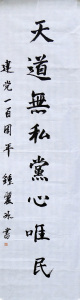 天道無私黨心唯民
建党一百周年 鍾麗詠書